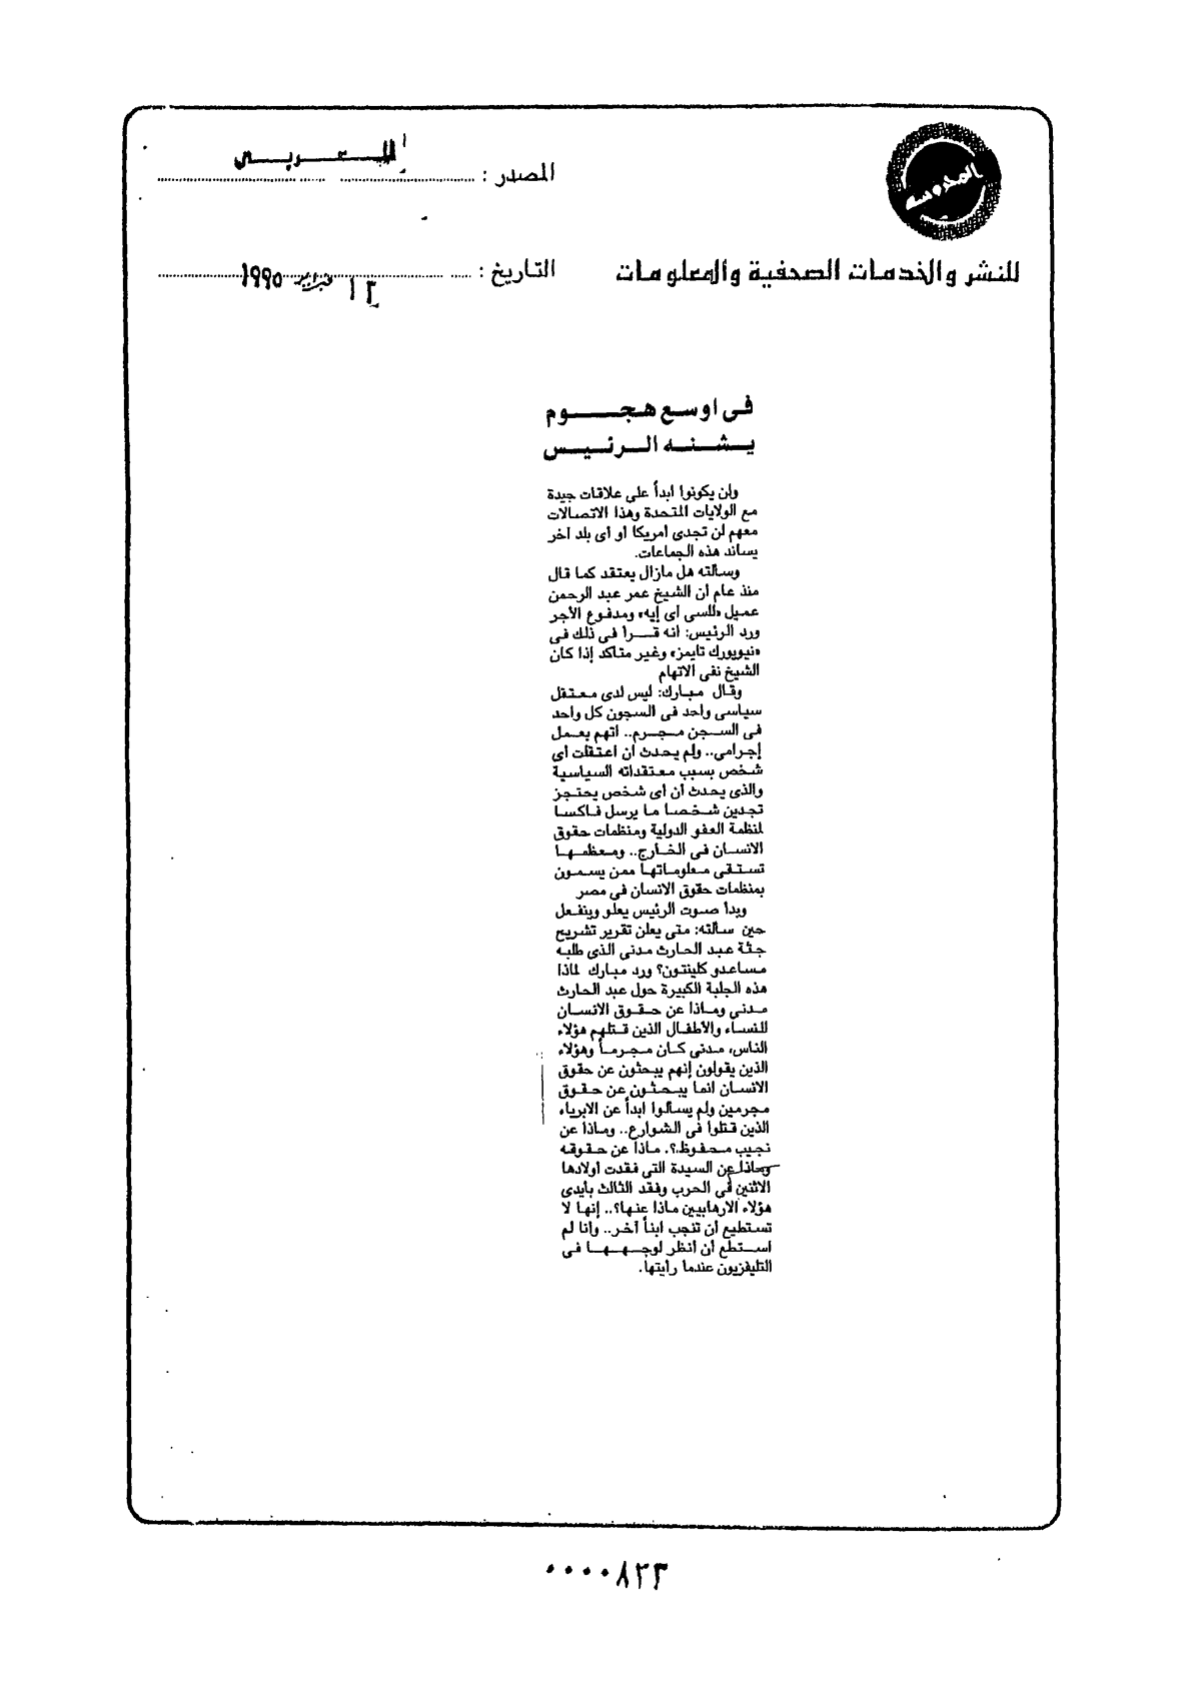 المحروسه
المصدر : العربى
للنشر والخدمات الصحفية والمعلومات
التاريخ : ١٣ فبراير ١٩٩٥
فى اوسع هجوم
يشنه الرئيس
ولن يكونوا ابداً على علاقات جيدة
مع الولايات المتحدة وهذا الاتصالات
معهم لن تجدى أمريكا أو أى بلد آخر
يساند هذه الجماعات.
وسألته هل مازال يعتقد كما قال
منذ عام أن الشيخ عمر عبد الرحمن
عميل «للسى أى إيه» ومدفوع الأجر
ورد الرئيس: انه قرأ فى ذلك فى
«نيويورك تايمز» وغير متاكد إذا كان
الشيخ نفى الاتهام
وقال مبارك: ليس لدى معتقل
سياسى واحد فى السجون كل واحد
فى السجن مجرم.. اتهم بعمل
إجرامى.. ولم يحدث أن اعتقلت أى
شخص بسبب معتقداته السياسية
والذى يحدث أن أى شخص يحتجز
تجدين شخصا ما يرسل فاكسا
لمنظمة العفو الدولية ومنظمات حقوق
الانسان فى الخارج.. ومعظمها
تستقى معلوماتها ممن يسمون
بمنظمات حقوق الانسان فى مصر
وبدأ صوت الرئيس يعلو وينفعل
حين سألته: متى يعلن تقرير تشريح
جثة عبد الحارث مدنى الذى طلبه
مساعدو كلينتون؟ ورد مبارك لماذا
هذه الجلبة الكبيرة حول عبد الحارث
مدنى وماذا عن حقوق الانسان
للنساء والأطفال الذين قتلهم هؤلاء
الناس، مدنى كان مجرماً وهؤلاء
الذين يقولون إنهم يبحثون عن حقوق
الانسان انما يبحثون عن حقوق
مجرمين ولم يسألوا ابداً عن الابرياء
الذين قتلوا فى الشوارع.. وماذا عن
نجيب محفوظ؟. ماذا عن حقوقه
وماذا عن السيدة التى فقدت أولادها
الاثنين فى الحرب وفقد الثالث بأيدى
هؤلاء الارهابيين ماذا عنها؟.. إنها لا
تستطيع أن تنجب ابناً آخر.. وأنا لم
استطع أن أنظر لوجهها فى
التليفزيون عندما رأيتها.
٠٠٠٠٨٢٣